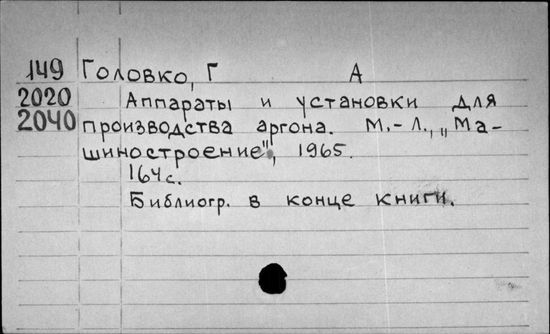 149 Головко, Г А
2020 Аппараты и установки для
2040 производства аргона. М.-Л., „Ма-
шиностроение", 1965.
164 с.
Библиогр. в конце книги.